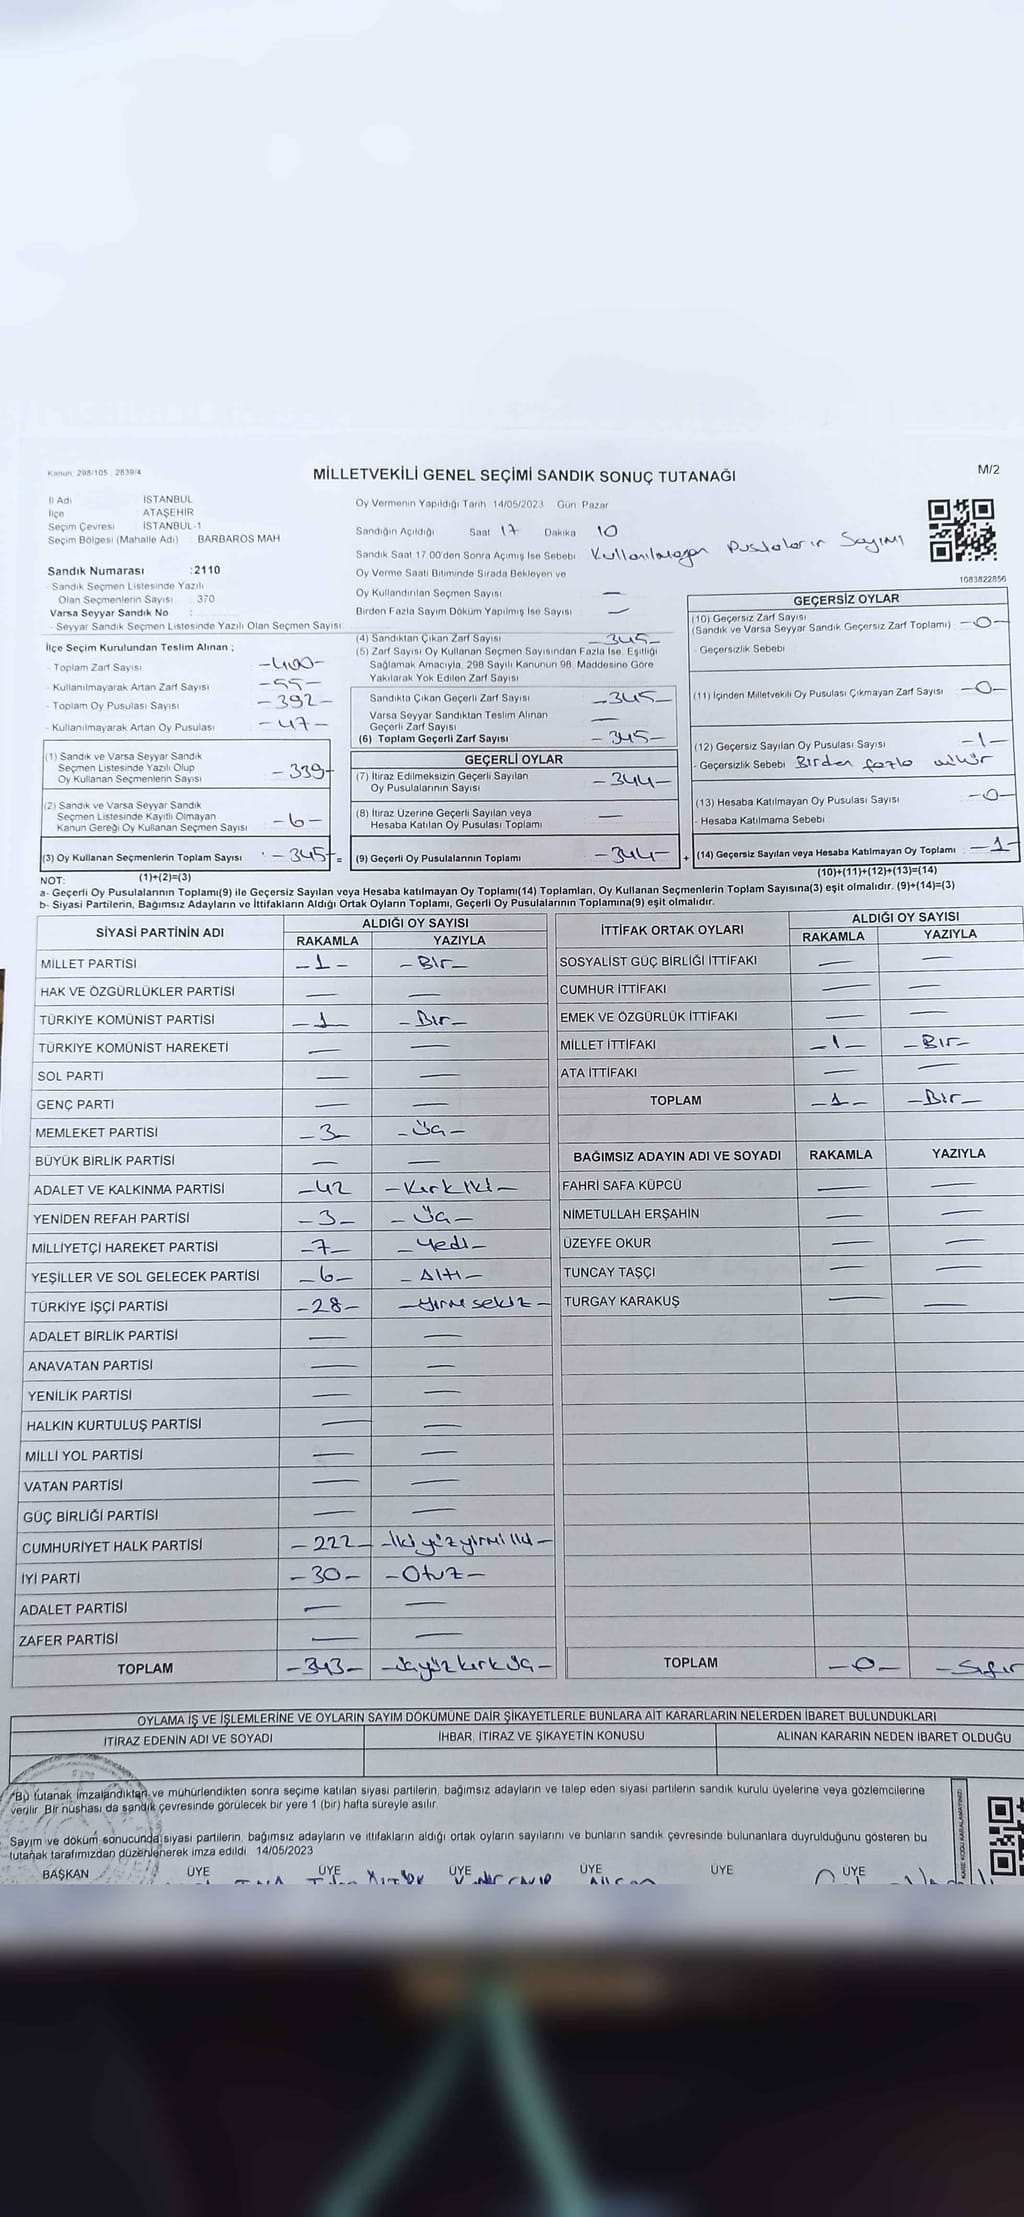 Kanun: 298/105, 2839/4
MİLLETVEKİLİ GENEL SEÇİMİ SANDIK SONUÇ TUTANAĞI
M/2
İl Adı İSTANBUL
İlçe ATAŞEHİR
Seçim Çevresi : İSTANBUL-1
Seçim Bölgesi (Mahalle Adı) : BARBAROS MAH
Oy Vermenin Yapıldığı Tarih: 14/05/2023 Gün: Pazar
Sandığın Açıldığı Saat 17 Dakika 10
Sandık Saat 17.00'den Sonra Açımış İse Sebebi Kullanılmayan Pusulaların Sayımı
Sandık Numarası :2110
- Sandık Seçmen Listesinde Yazılı
Olan Seçmenlerin Sayısı : 370
Varsa Seyyar Sandık No :
- Seyyar Sandık Seçmen Listesinde Yazılı Olan Seçmen Sayısı:
Oy Verme Saati Bitiminde Sırada Bekleyen ve
Oy Kullandırılan Seçmen Sayısı —
Birden Fazla Sayım Döküm Yapılmış İse Sayısı —
1083822856
İlçe Seçim Kurulundan Teslim Alınan ;
- Toplam Zarf Sayısı -400-
- Kullanılmayarak Artan Zarf Sayısı -55-
- Toplam Oy Pusulası Sayısı -392-
- Kullanılmayarak Artan Oy Pusulası -47-
(1) Sandık ve Varsa Seyyar Sandık
Seçmen Listesinde Yazılı Olup
Oy Kullanan Seçmenlerin Sayısı -339-
(2) Sandık ve Varsa Seyyar Sandık
Seçmen Listesinde Kayıtlı Olmayan
Kanun Gereği Oy Kullanan Seçmen Sayısı -6-
(3) Oy Kullanan Seçmenlerin Toplam Sayısı : -345- =
(1)+(2)=(3)
(4) Sandıktan Çıkan Zarf Sayısı -345-
(5) Zarf Sayısı Oy Kullanan Seçmen Sayısından Fazla İse, Eşitliği
Sağlamak Amacıyla, 298 Sayılı Kanunun 98. Maddesine Göre
Yakılarak Yok Edilen Zarf Sayısı
Sandıkta Çıkan Geçerli Zarf Sayısı -345-
Varsa Seyyar Sandıktan Teslim Alınan
Geçerli Zarf Sayısı —
(6) Toplam Geçerli Zarf Sayısı -345-
GEÇERLİ OYLAR
(7) İtiraz Edilmeksizin Geçerli Sayılan
Oy Pusulalarının Sayısı -344-
(8) İtiraz Üzerine Geçerli Sayılan veya
Hesaba Katılan Oy Pusulası Toplamı —
(9) Geçerli Oy Pusulalarının Toplamı -344- +
GEÇERSİZ OYLAR
(10) Geçersiz Zarf Sayısı
(Sandık ve Varsa Seyyar Sandık Geçersiz Zarf Toplamı) : -0-
- Geçersizlik Sebebi
(11) İçinden Milletvekili Oy Pusulası Çıkmayan Zarf Sayısı -0-
(12) Geçersiz Sayılan Oy Pusulası Sayısı -1-
- Geçersizlik Sebebi Birden fazla mühür
(13) Hesaba Katılmayan Oy Pusulası Sayısı -0-
- Hesaba Katılmama Sebebi :
(14) Geçersiz Sayılan veya Hesaba Katılmayan Oy Toplamı : -1-
(10)+(11)+(12)+(13)=(14)
NOT:
a- Geçerli Oy Pusulalarının Toplamı(9) ile Geçersiz Sayılan veya Hesaba katılmayan Oy Toplamı(14) Toplamları, Oy Kullanan Seçmenlerin Toplam Sayısına(3) eşit olmalıdır. (9)+(14)=(3)
b- Siyasi Partilerin, Bağımsız Adayların ve İttifakların Aldığı Ortak Oyların Toplamı, Geçerli Oy Pusulalarının Toplamına(9) eşit olmalıdır.
SİYASİ PARTİNİN ADI ALDIĞI OY SAYISI
RAKAMLA YAZIYLA
MİLLET PARTİSİ -1- -Bir-
HAK VE ÖZGÜRLÜKLER PARTİSİ — —
TÜRKİYE KOMÜNİST PARTİSİ -1- -Bir-
TÜRKİYE KOMÜNİST HAREKETİ — —
SOL PARTİ — —
GENÇ PARTİ — —
MEMLEKET PARTİSİ -3- -Üç-
BÜYÜK BİRLİK PARTİSİ — —
ADALET VE KALKINMA PARTİSİ -42 -Kırkiki-
YENİDEN REFAH PARTİSİ -3- -Üç-
MİLLİYETÇİ HAREKET PARTİSİ -7- -Yedi-
YEŞİLLER VE SOL GELECEK PARTİSİ -6- -Altı-
TÜRKİYE İŞÇİ PARTİSİ -28- -Yirmisekiz-
ADALET BİRLİK PARTİSİ — —
ANAVATAN PARTİSİ — —
YENİLİK PARTİSİ — —
HALKIN KURTULUŞ PARTİSİ — —
MİLLİ YOL PARTİSİ — —
VATAN PARTİSİ — —
GÜÇ BİRLİĞİ PARTİSİ — —
CUMHURİYET HALK PARTİSİ -222- -İkiyüzyirmiiki-
İYİ PARTİ -30- -Otuz-
ADALET PARTİSİ — —
ZAFER PARTİSİ — —
TOPLAM -343- -üçyüzkırküç-
İTTİFAK ORTAK OYLARI ALDIĞI OY SAYISI
RAKAMLA YAZIYLA
SOSYALİST GÜÇ BİRLİĞİ İTTİFAKI — —
CUMHUR İTTİFAKI — —
EMEK VE ÖZGÜRLÜK İTTİFAKI — —
MİLLET İTTİFAKI -1- -Bir-
ATA İTTİFAKI — —
TOPLAM -1- -Bir-
BAĞIMSIZ ADAYIN ADI VE SOYADI RAKAMLA YAZIYLA
FAHRİ SAFA KÜPCÜ — —
NİMETULLAH ERŞAHİN — —
ÜZEYFE OKUR — —
TUNCAY TAŞÇI — —
TURGAY KARAKUŞ — —
TOPLAM -0- -Sıfır
OYLAMA İŞ VE İŞLEMLERİNE VE OYLARIN SAYIM DÖKÜMÜNE DAİR ŞİKAYETLERLE BUNLARA AİT KARARLARIN NELERDEN İBARET BULUNDUKLARI
İTİRAZ EDENİN ADI VE SOYADI İHBAR, İTİRAZ VE ŞİKAYETİN KONUSU ALINAN KARARIN NEDEN İBARET OLDUĞU
*Bu tutanak imzalandıktan ve mühürlendikten sonra seçime katılan siyasi partilerin, bağımsız adayların ve talep eden siyasi partilerin sandık kurulu üyelerine veya gözlemcilerine
verilir. Bir nüshası da sandık çevresinde görülecek bir yere 1 (bir) hafta süreyle asılır.
Sayım ve döküm sonucunda siyasi partilerin, bağımsız adayların ve ittifakların aldığı ortak oyların sayılarını ve bunların sandık çevresinde bulunanlara duyrulduğunu gösteren bu
tutanak tarafımızdan düzenlenerek imza edildi. 14/05/2023
BAŞKAN ÜYE ÜYE ÜYE ÜYE ÜYE ÜYE